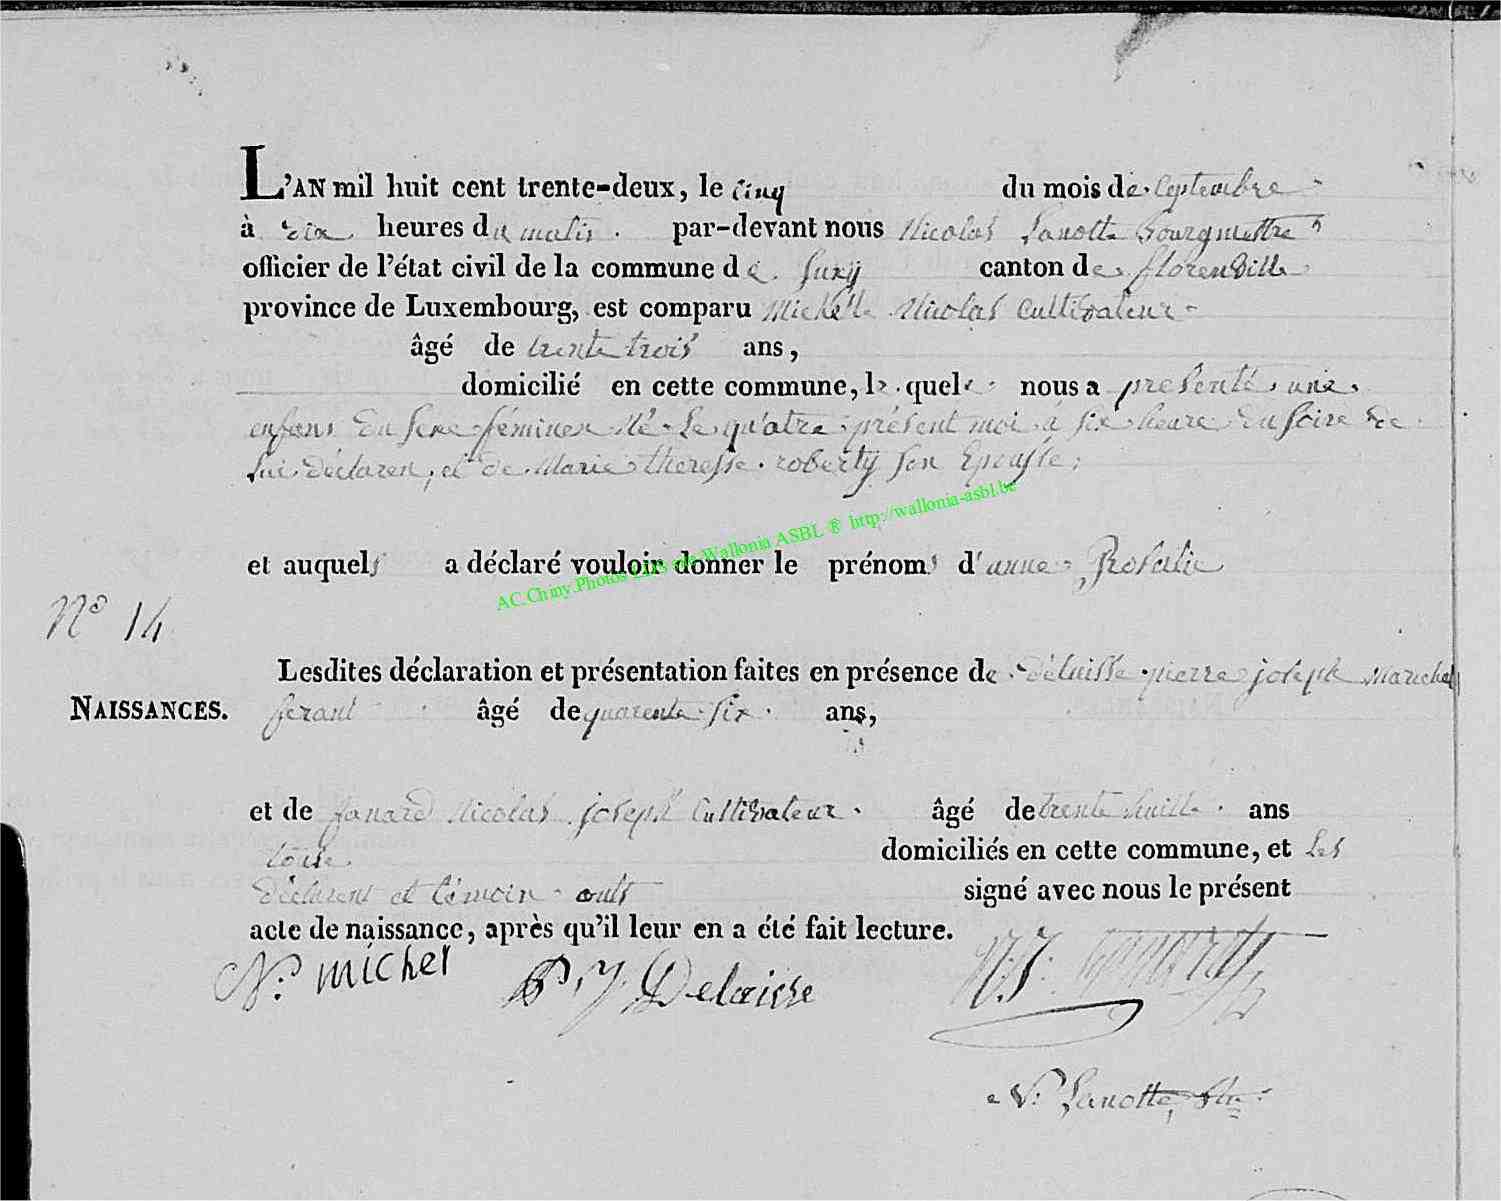 L'AN mil huit cent trente-deux, le cinq du mois de Septembre
à dix heures du matin par-devant nous Nicolas Lanotte Bourgmettre
officier de l'état civil de la commune de Suxy canton de florenville
province de Luxembourg, est comparu Michelle Nicolas Cultivateur
âgé de trente trois ans,
domicilié en cette commune, le quel nous a présenté une
enfans du sexe féminen Né Le quatre présent moi à six heure du soire de
lui déclaren, et de Marie theresse roberty son Epousse,
AC.Chiny.Photos par Wallonia ASBL ® http://wallonia-asbl.be
et auquels a déclaré vouloir donner le prénoms d'anne Rosalie
N° 14
Lesdites déclaration et présentation faites en présence de Delaisse pierre joseph Marichal
NAISSANCES. ferant âgé de quarente six ans,
et de fanard Nicolas joseph Cultivateur âgé de trente huitte ans
tous domiciliés en cette commune, et les
déclarent et témoin onts signé avec nous le présent
acte de naissance, après qu'il leur en a été fait lecture.
N: michel P J Delaisse N: J:
N: Lanotte